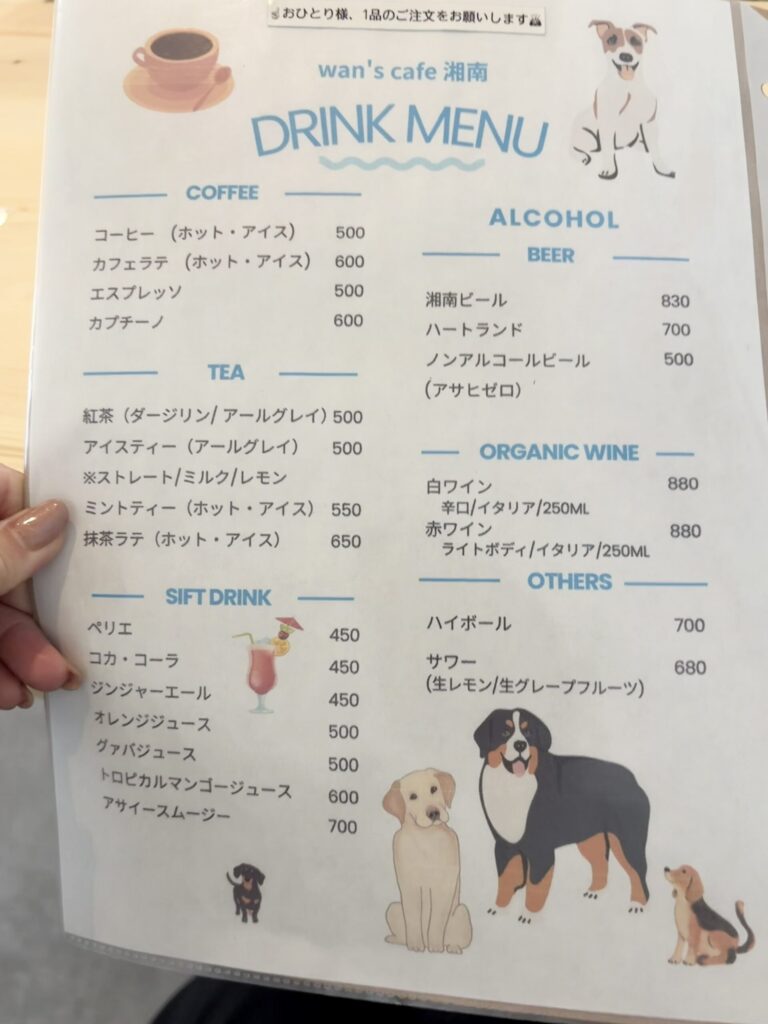 おひとり様、1品のご注文をお願いします
wan's cafe 湘南
DRINK MENU
COFFEE
コーヒー (ホット・アイス) 500
カフェラテ (ホット・アイス) 600
エスプレッソ 500
カプチーノ 600
TEA
紅茶 (ダージリン/ アールグレイ) 500
アイスティー (アールグレイ) 500
※ストレート/ミルク/レモン
ミントティー (ホット・アイス) 550
抹茶ラテ (ホット・アイス) 650
SIFT DRINK
ペリエ 450
コカ・コーラ 450
ジンジャーエール 450
オレンジジュース 500
グァバジュース 500
トロピカルマンゴージュース 600
アサイースムージー 700
ALCOHOL
BEER
湘南ビール 830
ハートランド 700
ノンアルコールビール 500
(アサヒゼロ)
ORGANIC WINE
白ワイン 880
辛口/イタリア/250ML
赤ワイン 880
ライトボディ/イタリア/250ML
OTHERS
ハイボール 700
サワー 680
(生レモン/生グレープフルーツ)